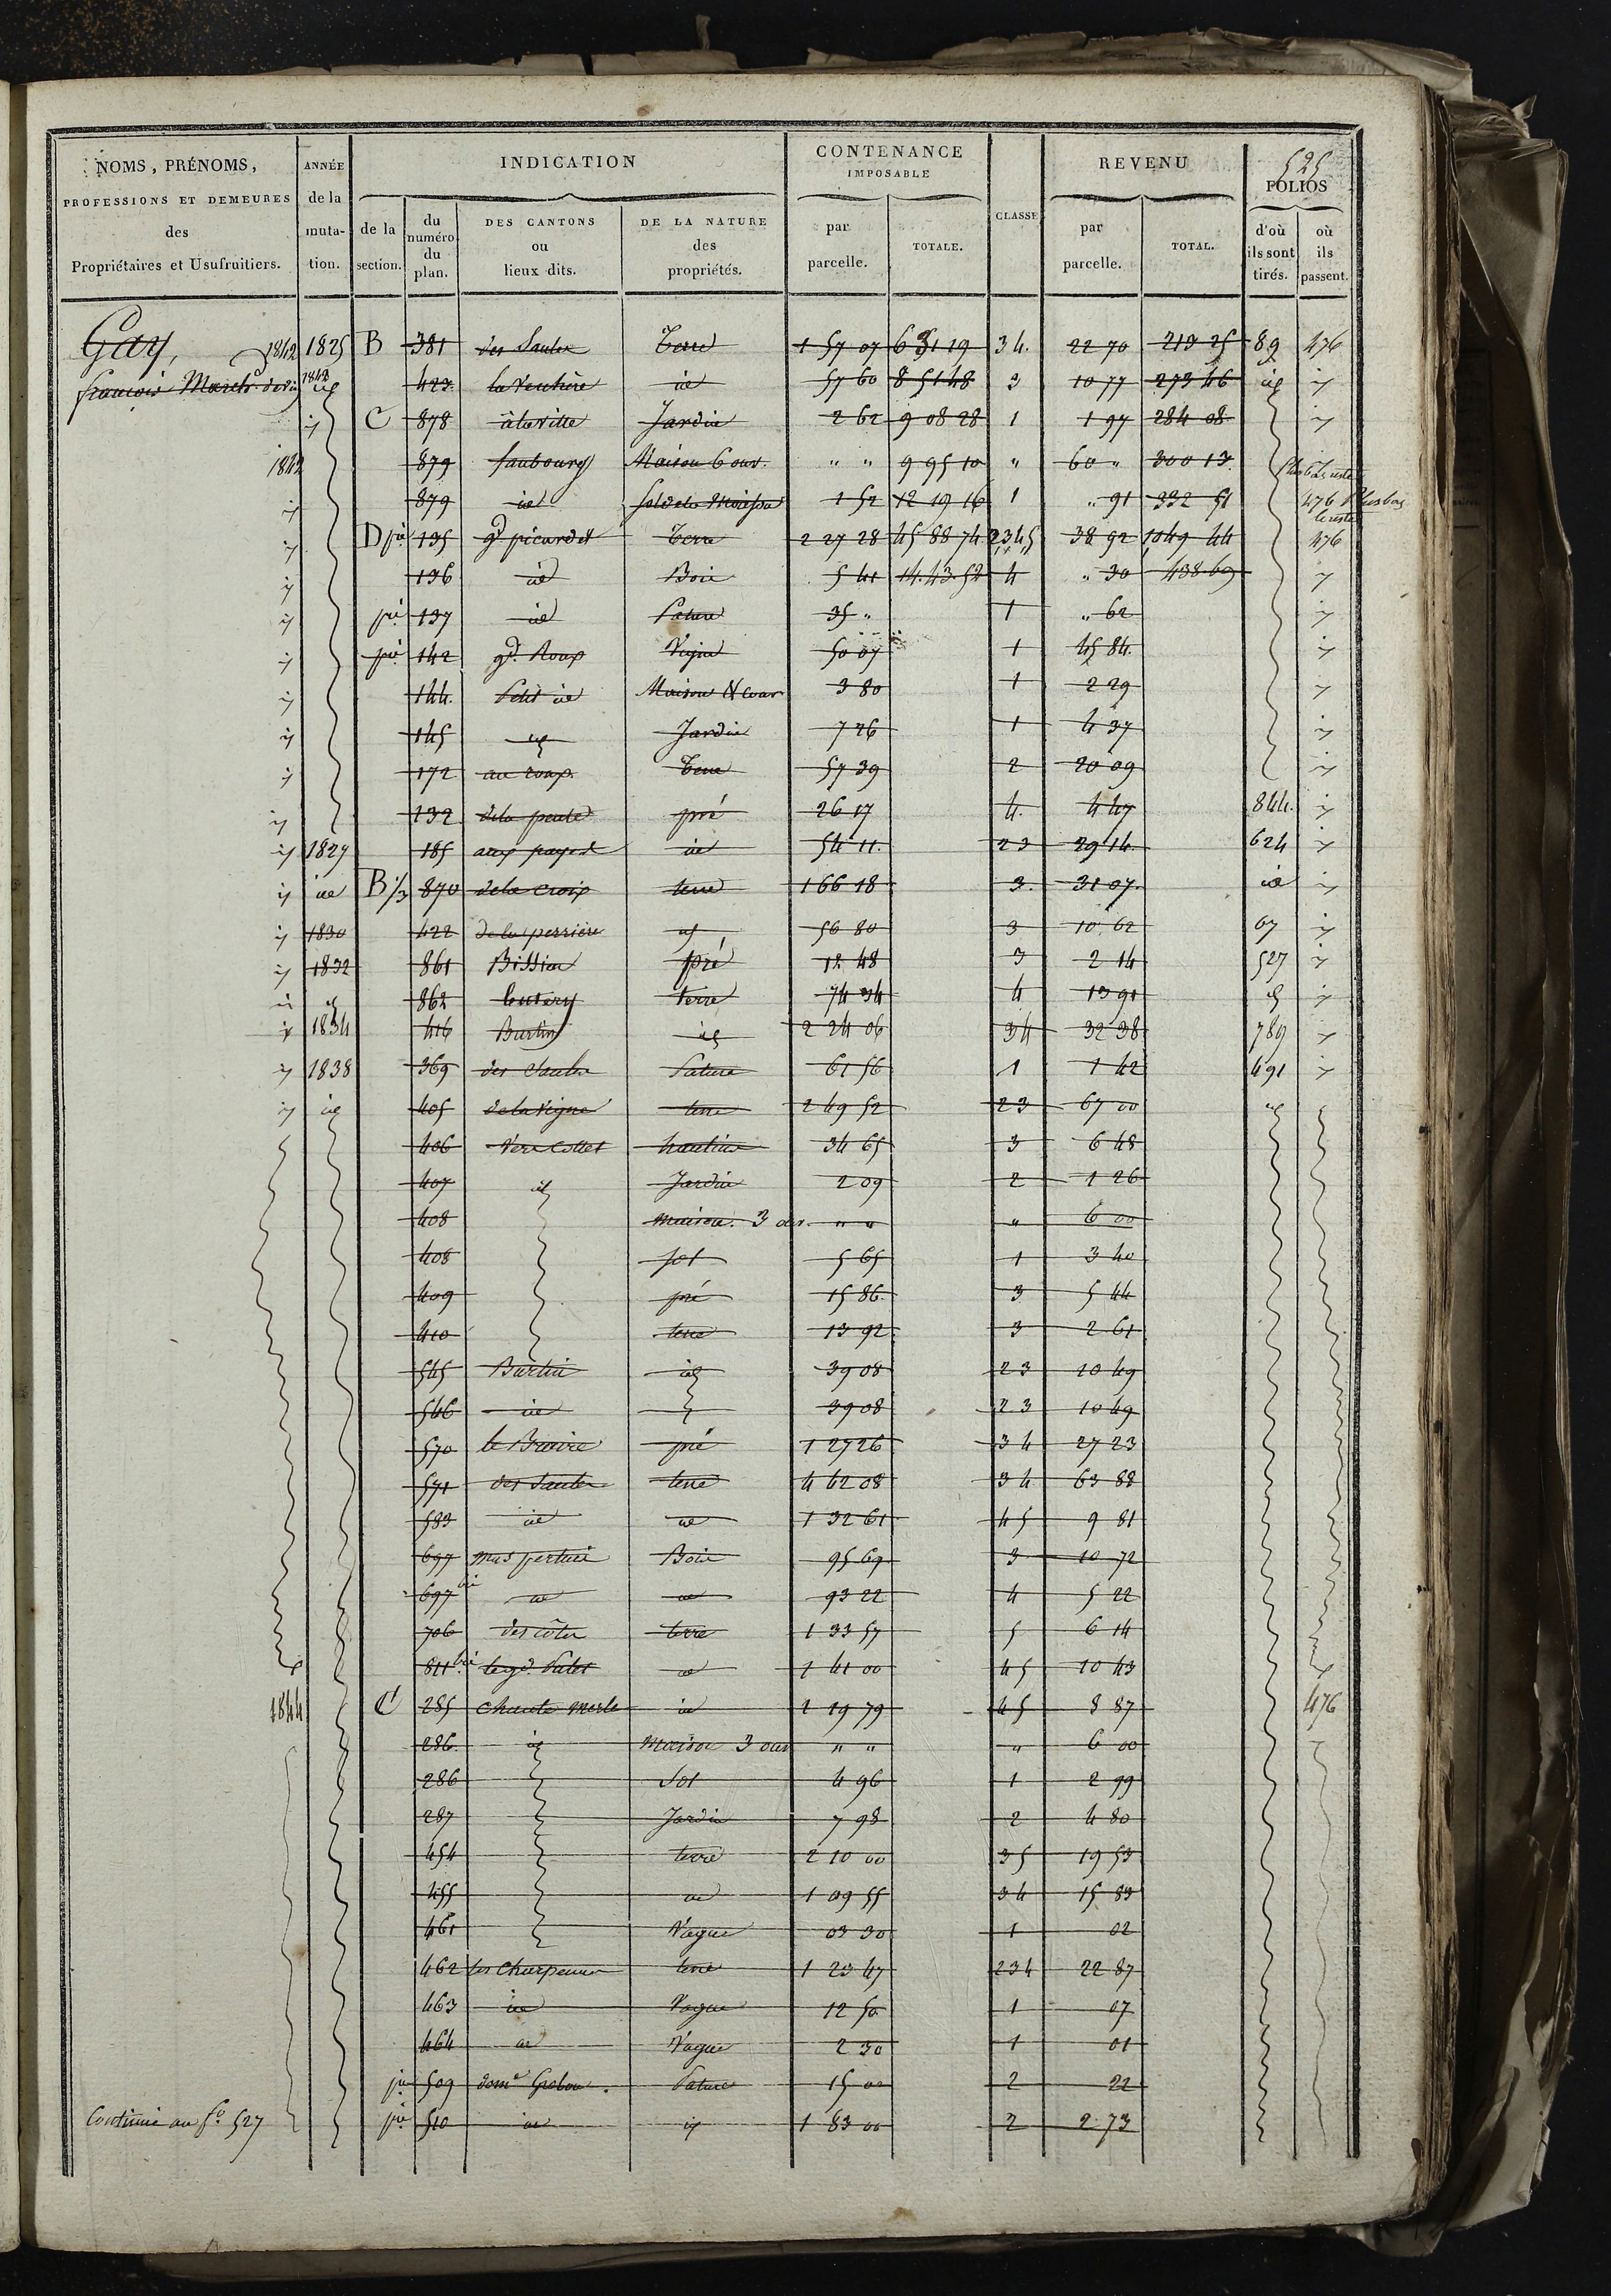 525
NOMS, PRÉNOMS, PROFESSIONS ET DEMEURES des Propriétaires et Usufruitiers.
ANNÉE de la muta- tion.
INDICATION
de la section.
du numéro du plan.
DES CANTONS ou lieux dits.
DE LA NATURE des propriétés.
CONTENANCE IMPOSABLE
par parcelle.
TOTALE.
CLASSE
REVENU
par parcelle.
TOTAL.
FOLIOS
d'où ils sont tirés.
où ils passent.
Gay, 1842 1825 B 381 des Saules Terre 1 57 07 6 31 19 34. 22 70 213 25 89 476
françois March. 1842 id 423 id 57 60 8 51 48 3 10 77 273 46 id
C 878 à la ville Jardin 2 62 9 08 28 1 1 97 284 08
1842 879 faubourg Maison 6 ouv. " " 9 95 10 " 60 " 300 13
879 id 1 52 12 19 16 1 " 91 332 51 476
D pie 135 gd picardet Terre 2 27 28 45 88 74 2345 38 92 1049 44 476
136 id Bois 5 41 14.43.52 4 " 30 438.69
pie 137 id Pature 35 " 1 " 62
pie 142 gd. Roup Vigne 50 07 1 45 84
144. Petit id Maison & cour 3 80 1 2 29
145 id Jardin 7 26 1 4 37
172 au roup. Terre 57 39 2 20 09
132 pré 26 17 4. 4 47 844.
1827 185 id 54 11. 23 29 14. 624
id B 1/3 870 de la croix terre 1 66 18 3. 31 07. id
1830 422 de la perrière id 56 80 3 10 62 67
1832 861 Bission pré 12 48 3 2 14 527
id 862 terre 74 34 4 13 91 id
1834 416 Burtin id 2 24 06 34 32 38 789
1838 369 des Saules Pature 61 56 1 1 42 491
id 405 de la vigne terre 2 49 52 23 67 00 id
406 Vers Collet hautins 34 65 3 6 48
407 id Jardin 2 09 2 1 26
408 maison. 3 ouv. " " " 6 00
408 sol 5 65 1 3 40
409 pré 15 86. 3 5 44
410 terre 13 92 3 2 61
545 Burtin id 39 08 23 10 49
546 id 39 08 23 10 49
570 pré 1 27 26 34 27 23
571 des Saules terre 4 62 08 34 63 88
583 id id 1 32 61 45 9 81
697 Bois 95 69 3 10 72
697 bis id id 93 22 4 5 22
706 des côtes terre 1 33 57 5 6 14
811 bis id 1 41 00 45 10 43
1844 C 285 chante merle id 1 19 79 45 8 87 476
286. id Maison 3 ouv " " " 6 00
286 Sol 4 96 1 2 99
287 Jardin 7 98 2 4 80
454 terre 2 10 00 35 19 53
455 id 1 09 55 34 15 83
461 Vague 03 30 1 02
462 les Charpennes terre 1 23 47 234 22 87
463 id Vague 12 50 1 07
464 id Vague 2 30 1 01
pie 509 Pature 15 00 2 22
Continué au fo. 527 pie 510 id id 1 83 00 2 2 73